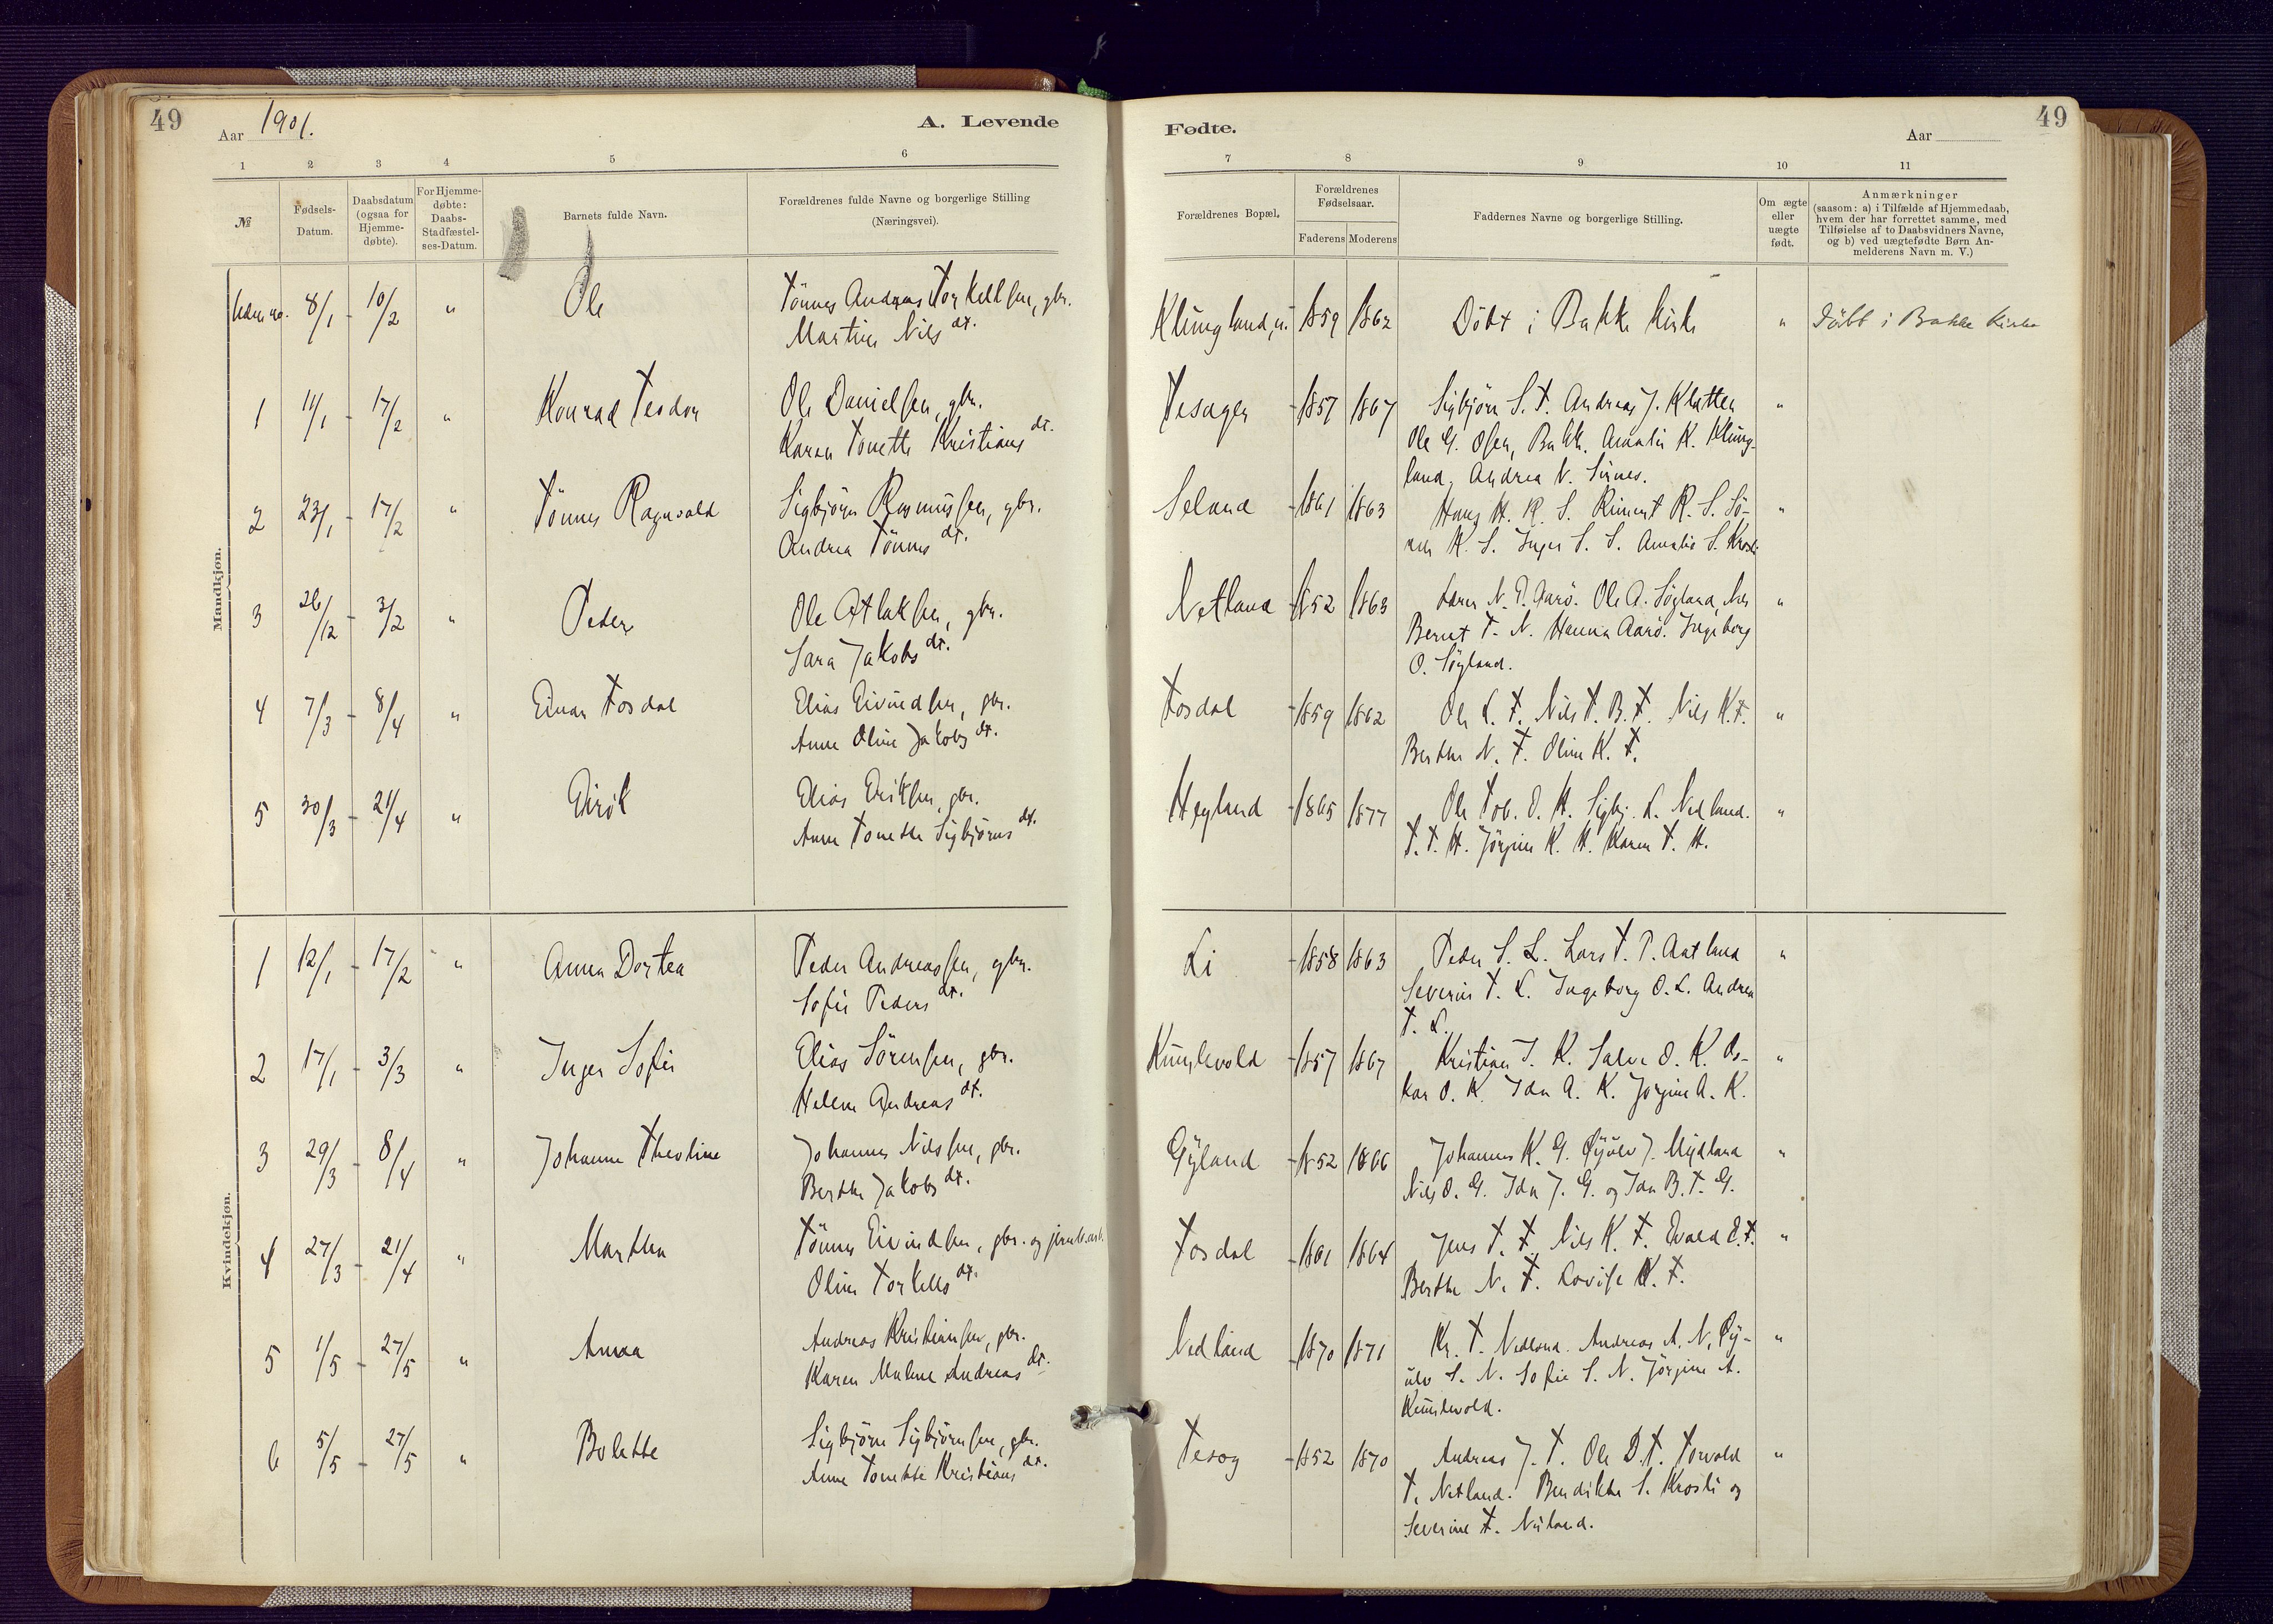 49
Aar 1901.
A. Levende
1 2 3 4 5 6
№
Fødsels-Datum.
Daabsdatum (ogsaa for Hjemme-døbte).
For Hjemme-døbte: Daabs-Stadfæstel-ses-Datum.
Barnets fulde Navn.
Forældrenes fulde Navne og borgerlige Stilling
(Næringsvei).
Mandkjøn.
Uden no. 8/1 - 10/2 " Ole Tönnes Andreas Torkellsen, gbr.
Martine Nilsdt.
1 11/1 - 17/2 " Konrad Teodor Ole Danielsen, gbr.
Karen Tonette Kristiansdt.
2 23/1 - 17/2 " Tönnes Ragnvald Sigbjörn Rasmussen, gbr.
Andrea Tönnesdt.
3 26/12 - 3/2 " Peder Ole Atlaksen, gbr.
Sara Jakobsdt.
4 7/3 - 8/4 " Einar Tosdal Elias Eivindsen, gbr.
Anne Oline Jakobsdt.
5 30/3 - 21/4 " Eirik Elias Eriksen, gbr.
Anne Tonette Sigbjörnsdt.
Kvindekjøn.
1 12/1 - 17/2 " Anna Dortea Peder Andreassen, gbr.
Sofie Pedersdt.
2 17/1 - 3/3 " Inger Sofie Elias Sörensen, gbr.
Helene Andreasdt.
3 29/3 - 8/4 " Johanne Theoline Johannes Nilssen, gbr.
Berthe Jakobsdt.
4 27/3 - 21/4 " Martha Tönnes Eivindsen, gbr. og
Oline Torkellsdt.
5 1/5 - 27/5 " Anna Andreas Kristiansen, gbr.
Karen Malene Andreasdt.
6 5/5 - 27/5 " Bolette Sigbjörn Sigbjörnsen, gbr.
Anne Tonette Kristiansdt.
Fødte.
Aar
49
7 8 9 10 11
Forældrenes Bopæl.
Forældrenes Fødselsaar.
Faderens Moderens
Faddernes Navne og borgerlige Stilling.
Om ægte eller uægte født.
Anmærkninger
(saasom: a) i Tilfælde af Hjemmedaab,
hvem der har forrettet samme, med
Tilføielse af to Daabsvidners Navne,
og b) ved uægtefødte Børn An-
melderens Navn m. V.)
Klungland, 1859 1862 Döbt i Bakke Kirke " Döbt i Bakke Kirke
Tesager - 1857 1867 Sigbjörn S. T. Andreas J. Klatten "
Ole G. Osen, Bakke. Amalie K. Klung-
land, Andrea N. Sirnes.
Seland - 1861 1863 Hans H. R. S. Rimert R. S. Sö- "
ren K. S. Inger S. S. Amalie S. Krosli
Netland - 1852 1863 Lars N. P. Aarö. Ole A. Högland, "
Bernt T. N. Hanna Aarö. Ingeborg
O. Högland.
Tosdal - 1859 1862 Ole L. T. Nils T. B. T. Nils K. T. "
Berthe N. T. Oline K. T.
Hegland - 1865 1877 Ole Tob. O. H. Sigbj. L. Nedland. "
T. T. H. Jörgine K. H. Karen T. H.
Li - 1858 1863 Peder S. L. Lars T. P. Aatland "
Severin T. L. Ingeborg O. L. Andrea
T. L.
Kumlevold - 1857 1867 Kristian T. K. Salve O. K. Os- "
kar O. K. Ida A. K. Jörgine A. K.
Gyland - 1852 1866 Johannes K. G. Öyulv J. Mydland "
Nils O. G. Ida J. G. og Ida B. T. G.
Tosdal - 1861 1864 Jens T. T. Nils K. T. Evald E. T. "
Berthe N. T. Lovise K. T.
Nedland - 1870 1871 Kr. T. Nedland. Andreas A. N. Öy- "
ulv S. N. Sofie S. N. Jörgine A.
Kumlevold.
Tesog - 1852 1870 Andreas J. T. Ole D. T. Torvald "
T. Netland. Bendikte S. Krosli og
Severine T. Nuland.